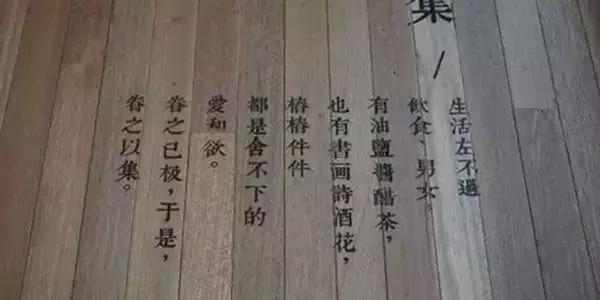 集/
生活左不過
飲食、男女,
有油鹽醬醋茶,
也有書画詩酒花,
樁樁件件
都是舍不下的
愛和欲。
眷之已极,于是,
眷之以集。